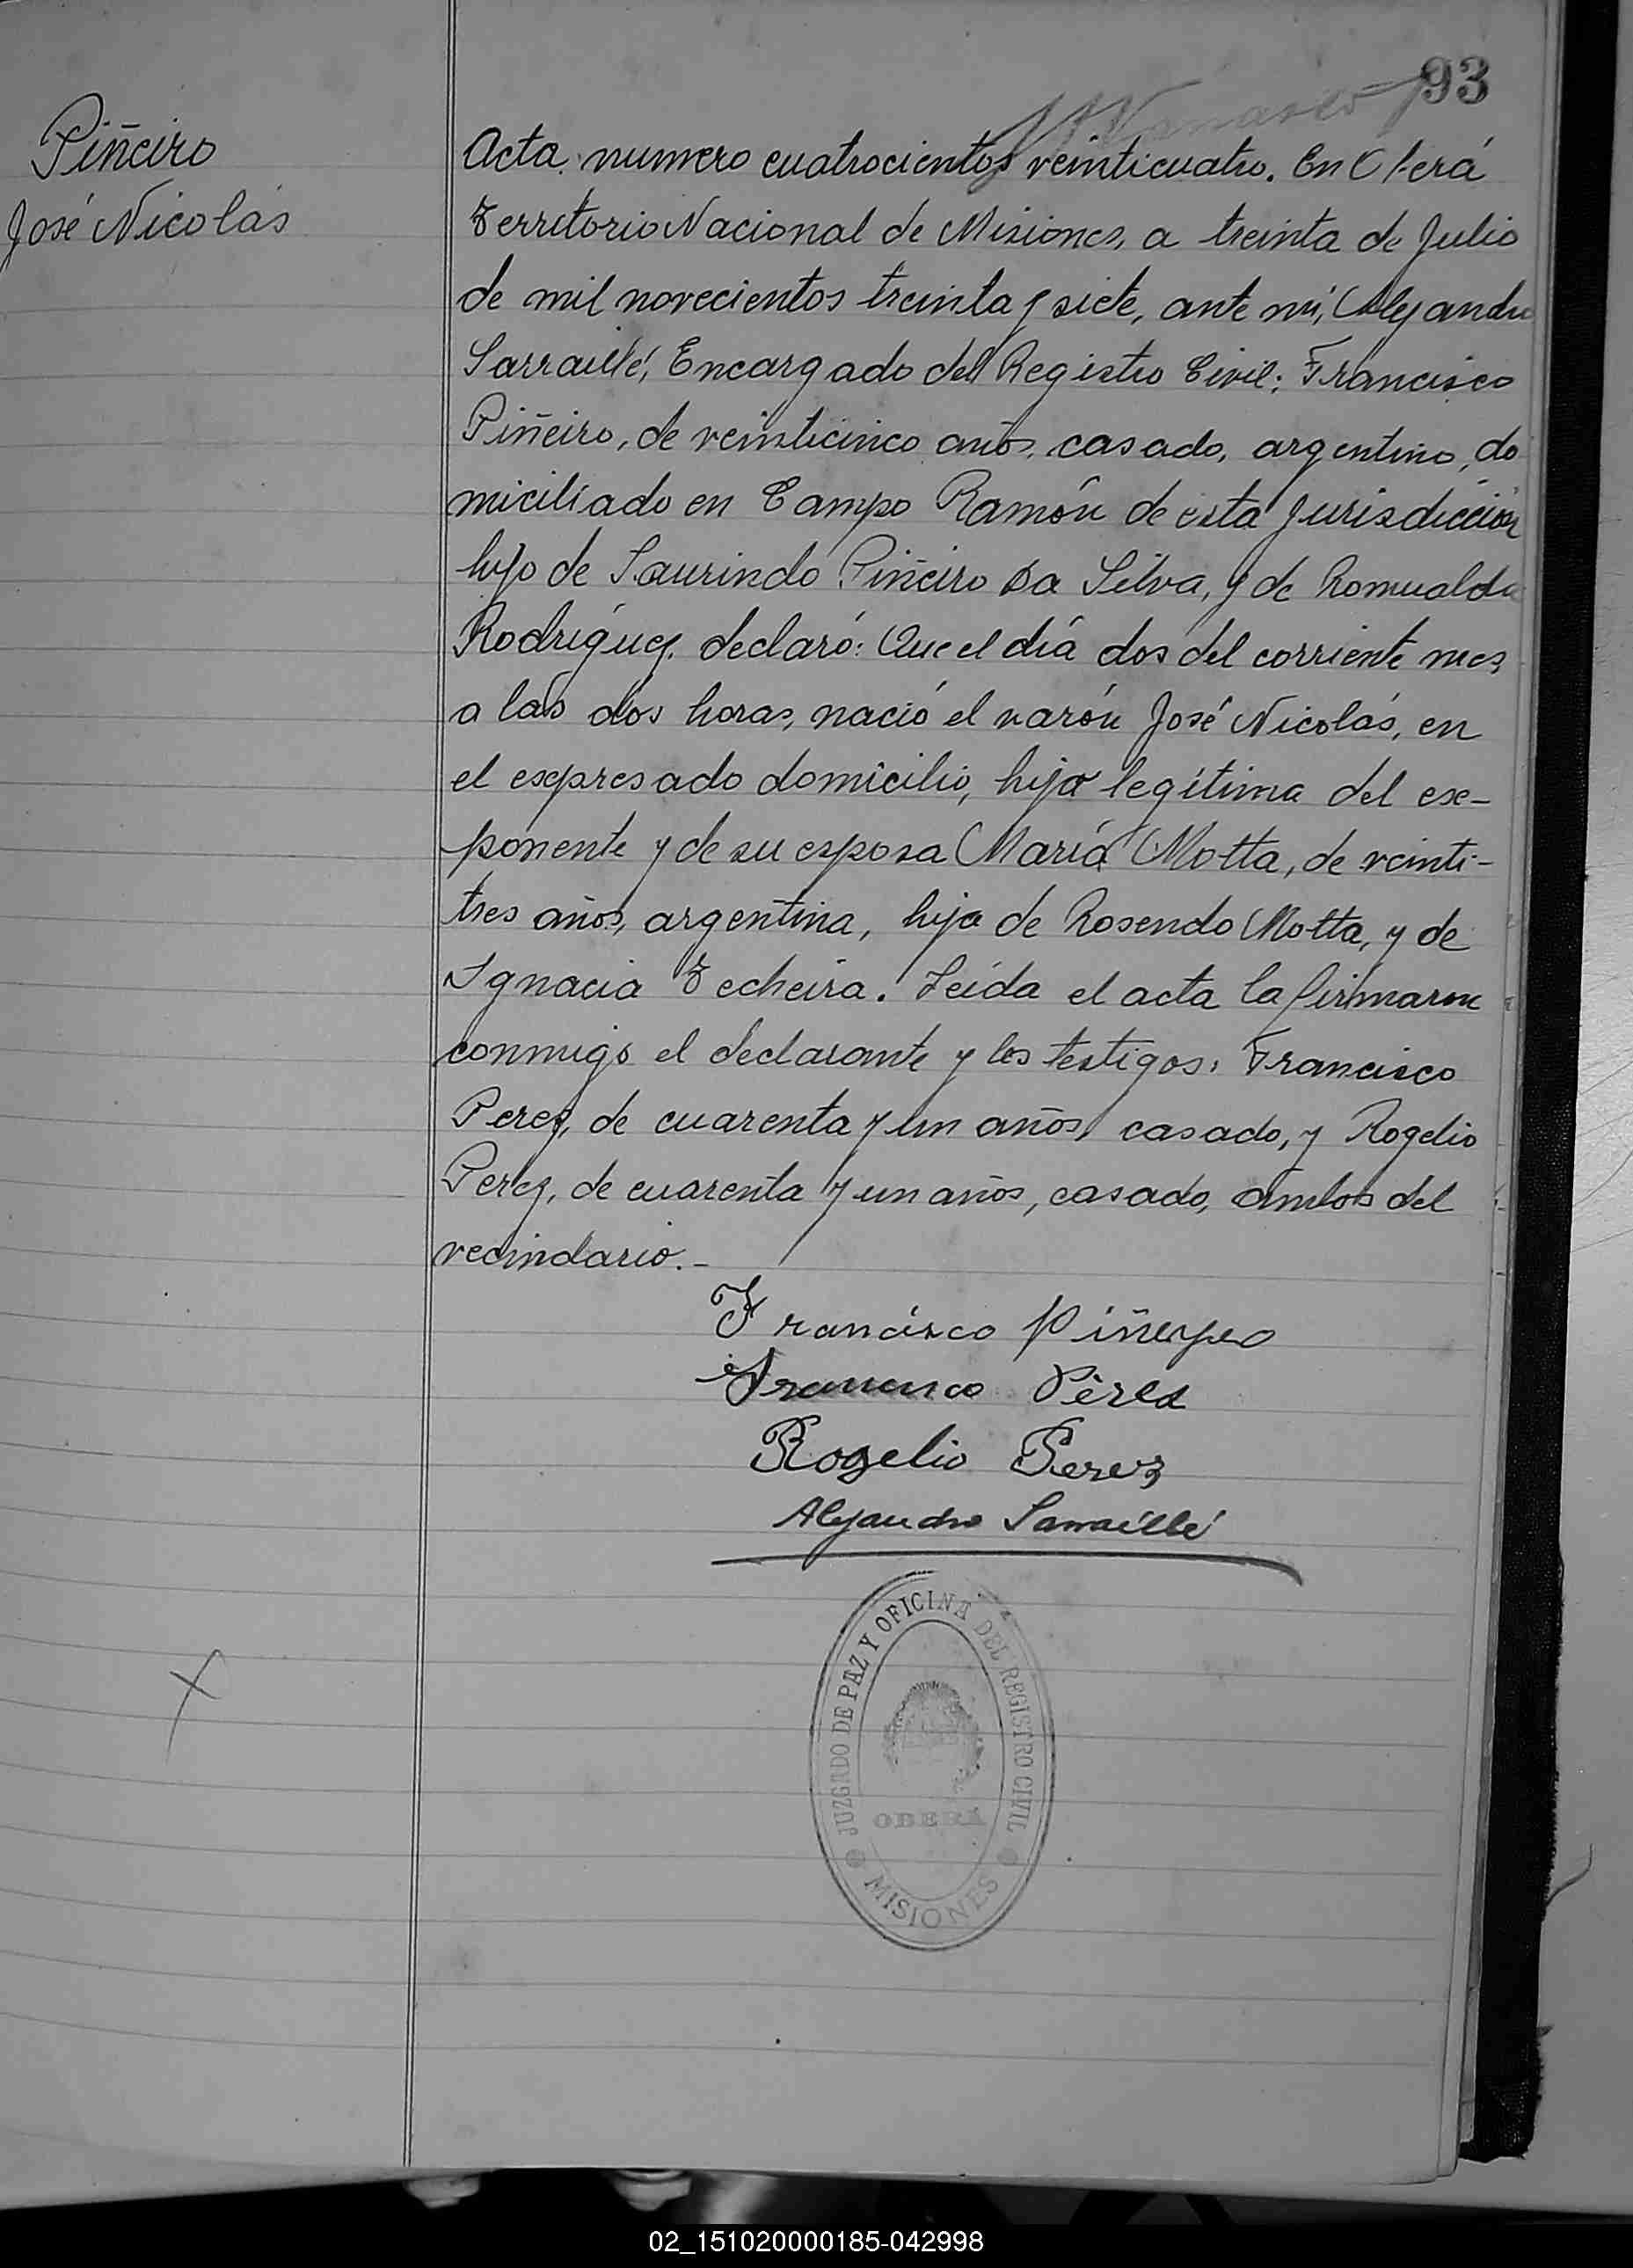 93
Piñeiro
José Nicolás
Acta numero cuatrocientos veinticuatro. En Oberá
Territorio Nacional de Misiones, a treinta de Julio
de mil novecientos treinta y siete, ante mi, Alejandro
Sarraillé, Encargado del Registro Civil: Francisco
Piñeiro, de veinticinco años, casado, argentino, do
miciliado en Campo Ramón de esta jurisdicción
hijo de Laurindo Piñeiro Da Silva, y de Romualda
Rodríguez, declaró: Que el día dos del corriente mes,
a las dos horas, nació el varón José Nicolás, en
el expresado domicilio, hijo legítima del ex-
ponente y de su esposa María Motta, de veinti-
tres años, argentina, hija de Rosendo Motta, y de
Ignacia Techeira. Leída el acta la firmaron
conmigo el declarante y los testigos: Francisco
Perez, de cuarenta y un años, casado, y Rogelio
Perez, de cuarenta y un años, casado, ambos del
vecindario.-
Francisco Piñeyro
Francisco Pérez
Rogelio Perez
Alejandro Sarraillé
JUZGADO DE PAZ Y OFICINA DEL REGISTRO CIVIL
OBERÁ
MISIONES
02_151020000185-042998